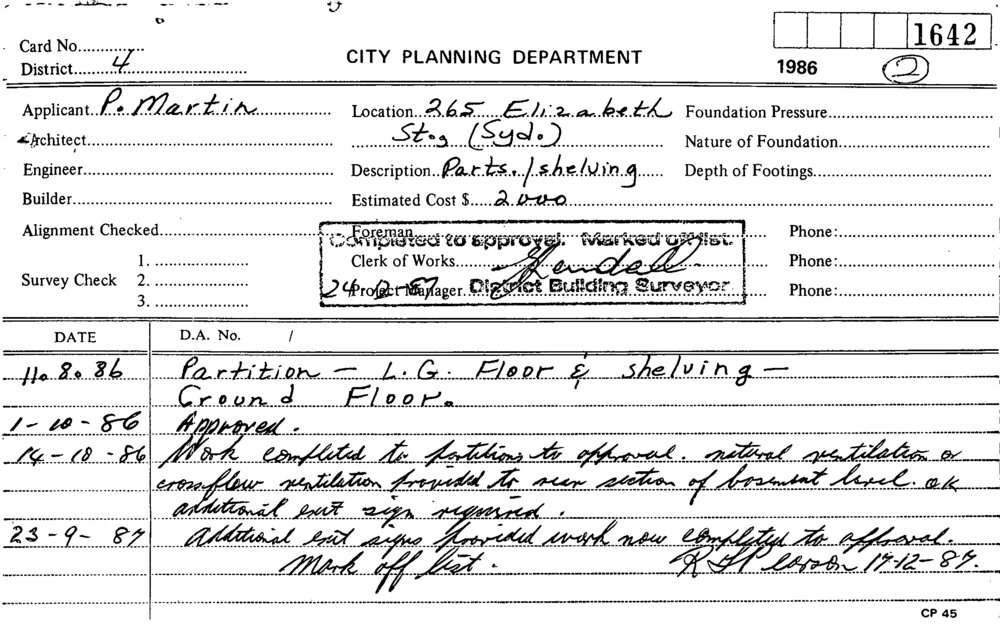 1642
Card No..............
District....4....................
CITY PLANNING DEPARTMENT
1986 2
Applicant..P. Martin..............
Location..265 Elizabeth
Foundation Pressure....................
Architect....................
St., (Syd.)
Nature of Foundation....................
Engineer....................
Description..Parts./shelving......
Depth of Footings....................
Builder....................
Estimated Cost $.....2000....................
Alignment Checked....................
Foreman
Phone:....................
Completed to approval. Marked off list.
1. ....................
Clerk of Works....................
Phone:....................
Survey Check 2. ....................
24-12-87
Project Manager
District Building Surveyor
Phone:....................
3. ....................
DATE
D.A. No. /
11.8.86 Partition — L.G. Floor & shelving —
Ground Floor.
1-10-86 Approved.
14-10-86 Work completed to partitions to approval. natural ventilation or
crossflow ventilation provided to rear section of basement level. OK
additional exit sign required.
23-9-87 Additional exit signs provided work now completed to approval.
Mark off list. 17-12-87.
CP 45